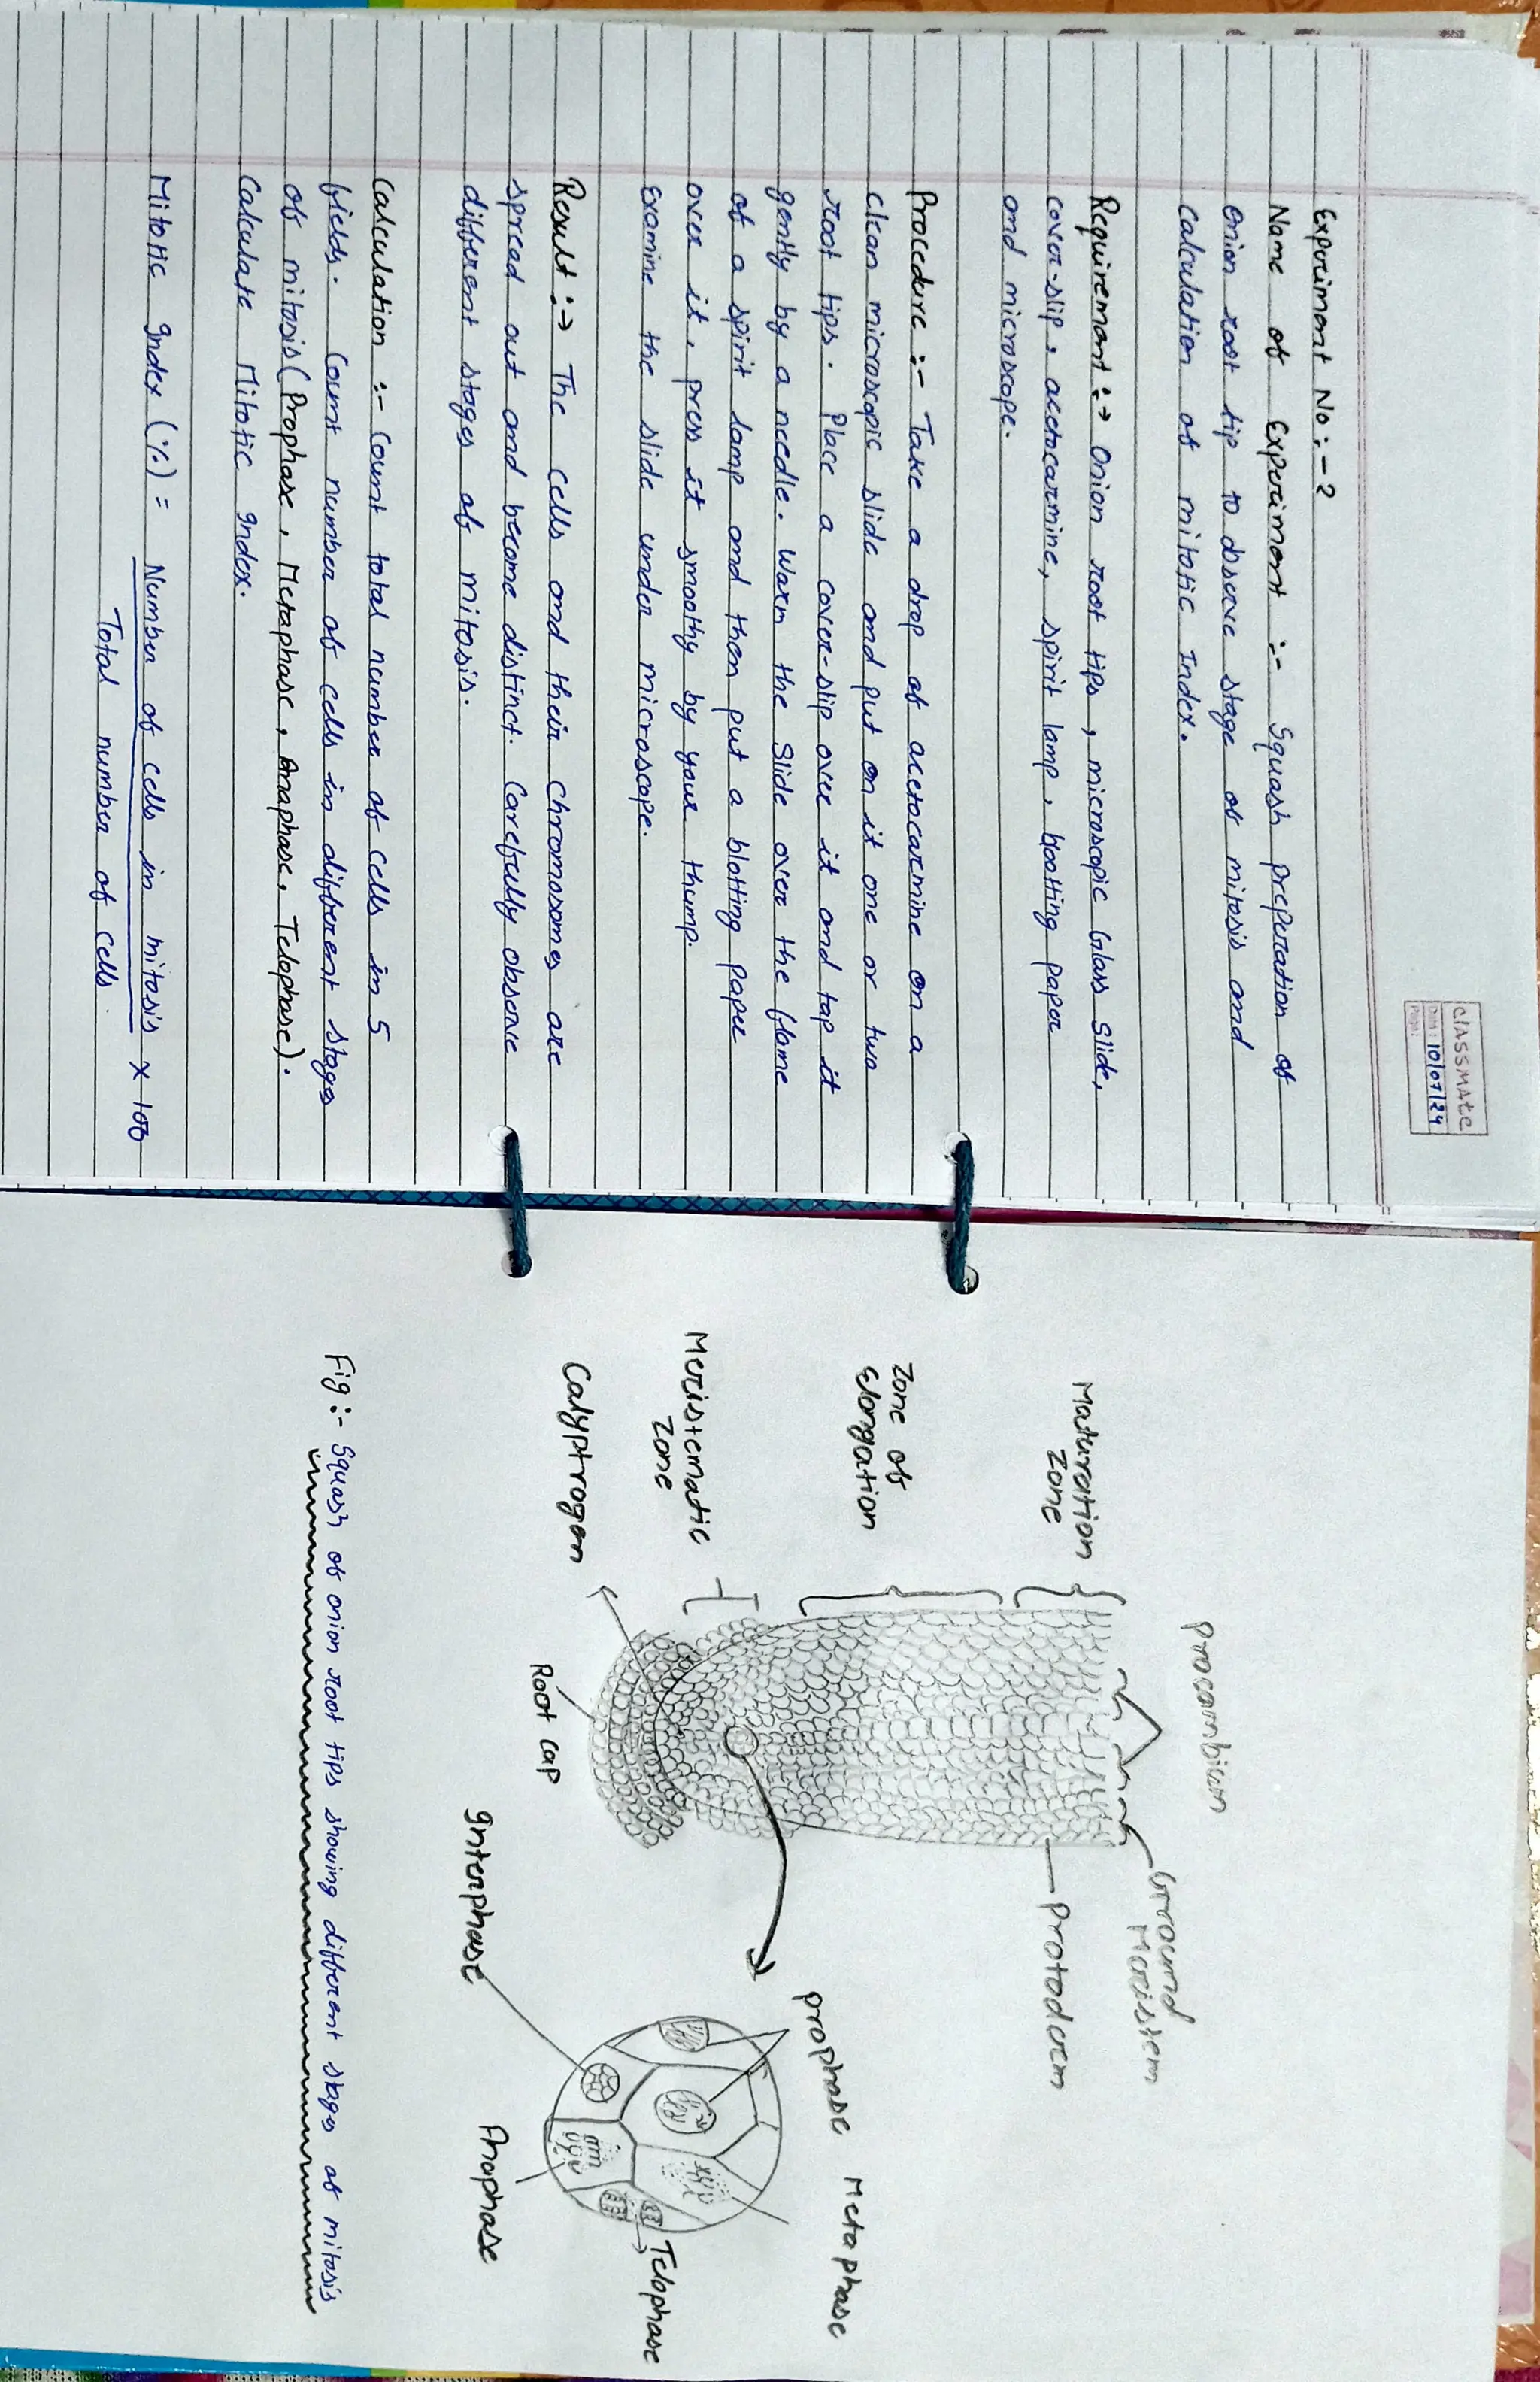 classmate
Date: 10/07/24
Page:
Experiment No :- 2
Name of Experiment :- Squash preperation of
Onion root tip to observe stage of mitosis and
calculation of mitotic Index.
Requirement :→ Onion root tips, microscopic Glass slide,
cover-slip, acetocarmine, spirit lamp, blotting paper
and microscope.
Procedure :- Take a drop of acetocarmine on a
clean microscopic slide and put on it one or two
root tips. Place a cover-slip over it and tap it
gently by a needle. Warm the slide over the flame
of a spirit lamp and then put a blotting paper
over it, press it smoothy by your thump.
Examine the slide under microscope.
Result :→ The cells and their chromosomes are
spread out and become distinct. Carefully observe
different stages of mitosis.
Calculation :- Count total number of cells in 5
fields. Count number of cells in different stages
of mitosis (Prophase, Metaphase, Anaphase, Telophase).
Calculate Mitotic Index.
Mitotic Index (%) = Number of cells in mitosis × 100
Total number of cells.
Procambium
Ground
Meristem
Maturation
Zone
Protoderm
Zone of
Elongation
Meristematic
Zone
Calyptrogen
Root cap
Prophase
Metaphase
Interphase
Anaphase
Telophase
Fig :- Squash of onion root tips showing different stages of mitosis